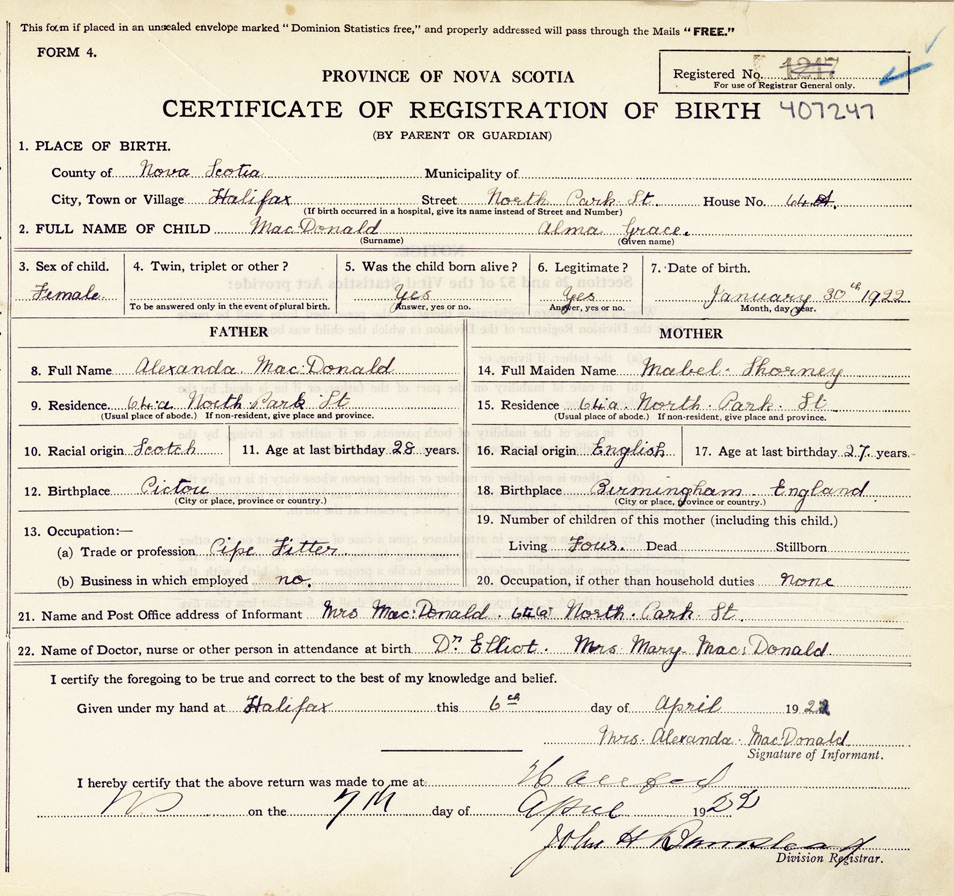 This form if placed in an unsealed envelope marked "Dominion Statistics free," and properly addressed will pass through the Mails "FREE."
FORM 4.
Registered No. 1247
For use of Registrar General only.
PROVINCE OF NOVA SCOTIA
CERTIFICATE OF REGISTRATION OF BIRTH 407247
(BY PARENT OR GUARDIAN)
1. PLACE OF BIRTH.
County of Nova Scotia Municipality of
City, Town or Village Halifax Street North Park St. House No. 64 A.
(If birth occurred in a hospital, give its name instead of Street and Number)
2. FULL NAME OF CHILD MacDonald Alma Grace.
(Surname) (Given name)
3. Sex of child. 4. Twin, triplet or other? 5. Was the child born alive? 6. Legitimate? 7. Date of birth.
Female. Yes Yes January 30th 1922
To be answered only in the event of plural birth. Answer, yes or no. Answer, yes or no. Month, day, year.
FATHER MOTHER
8. Full Name Alexanda. Mac:Donald 14. Full Maiden Name Mabel Shorney
9. Residence 64.a North Park St 15. Residence 64.a North. Park. St
(Usual place of abode.) If non-resident, give place and province. (Usual place of abode.) If non-resident, give place and province.
10. Racial origin Scotch 11. Age at last birthday 28 years. 16. Racial origin English 17. Age at last birthday 27 years.
12. Birthplace Pictou 18. Birthplace Birmingham. England
(City or place, province or country.) (City or place, province or country.)
13. Occupation:— 19. Number of children of this mother (including this child.)
(a) Trade or profession Pipe Fitter Living Four. Dead Stillborn
(b) Business in which employed no. 20. Occupation, if other than household duties none
21. Name and Post Office address of Informant Mrs Mac:Donald. 64a North. Park St.
22. Name of Doctor, nurse or other person in attendance at birth Dr Elliot. Mrs Mary Mac:Donald.
I certify the foregoing to be true and correct to the best of my knowledge and belief.
Given under my hand at Halifax this 6th day of April 1922
Mrs. Alexanda. MacDonald.
Signature of Informant.
I hereby certify that the above return was made to me at Halifax
NS on the 7th day of April 1922
John H Barnstead
Division Registrar.